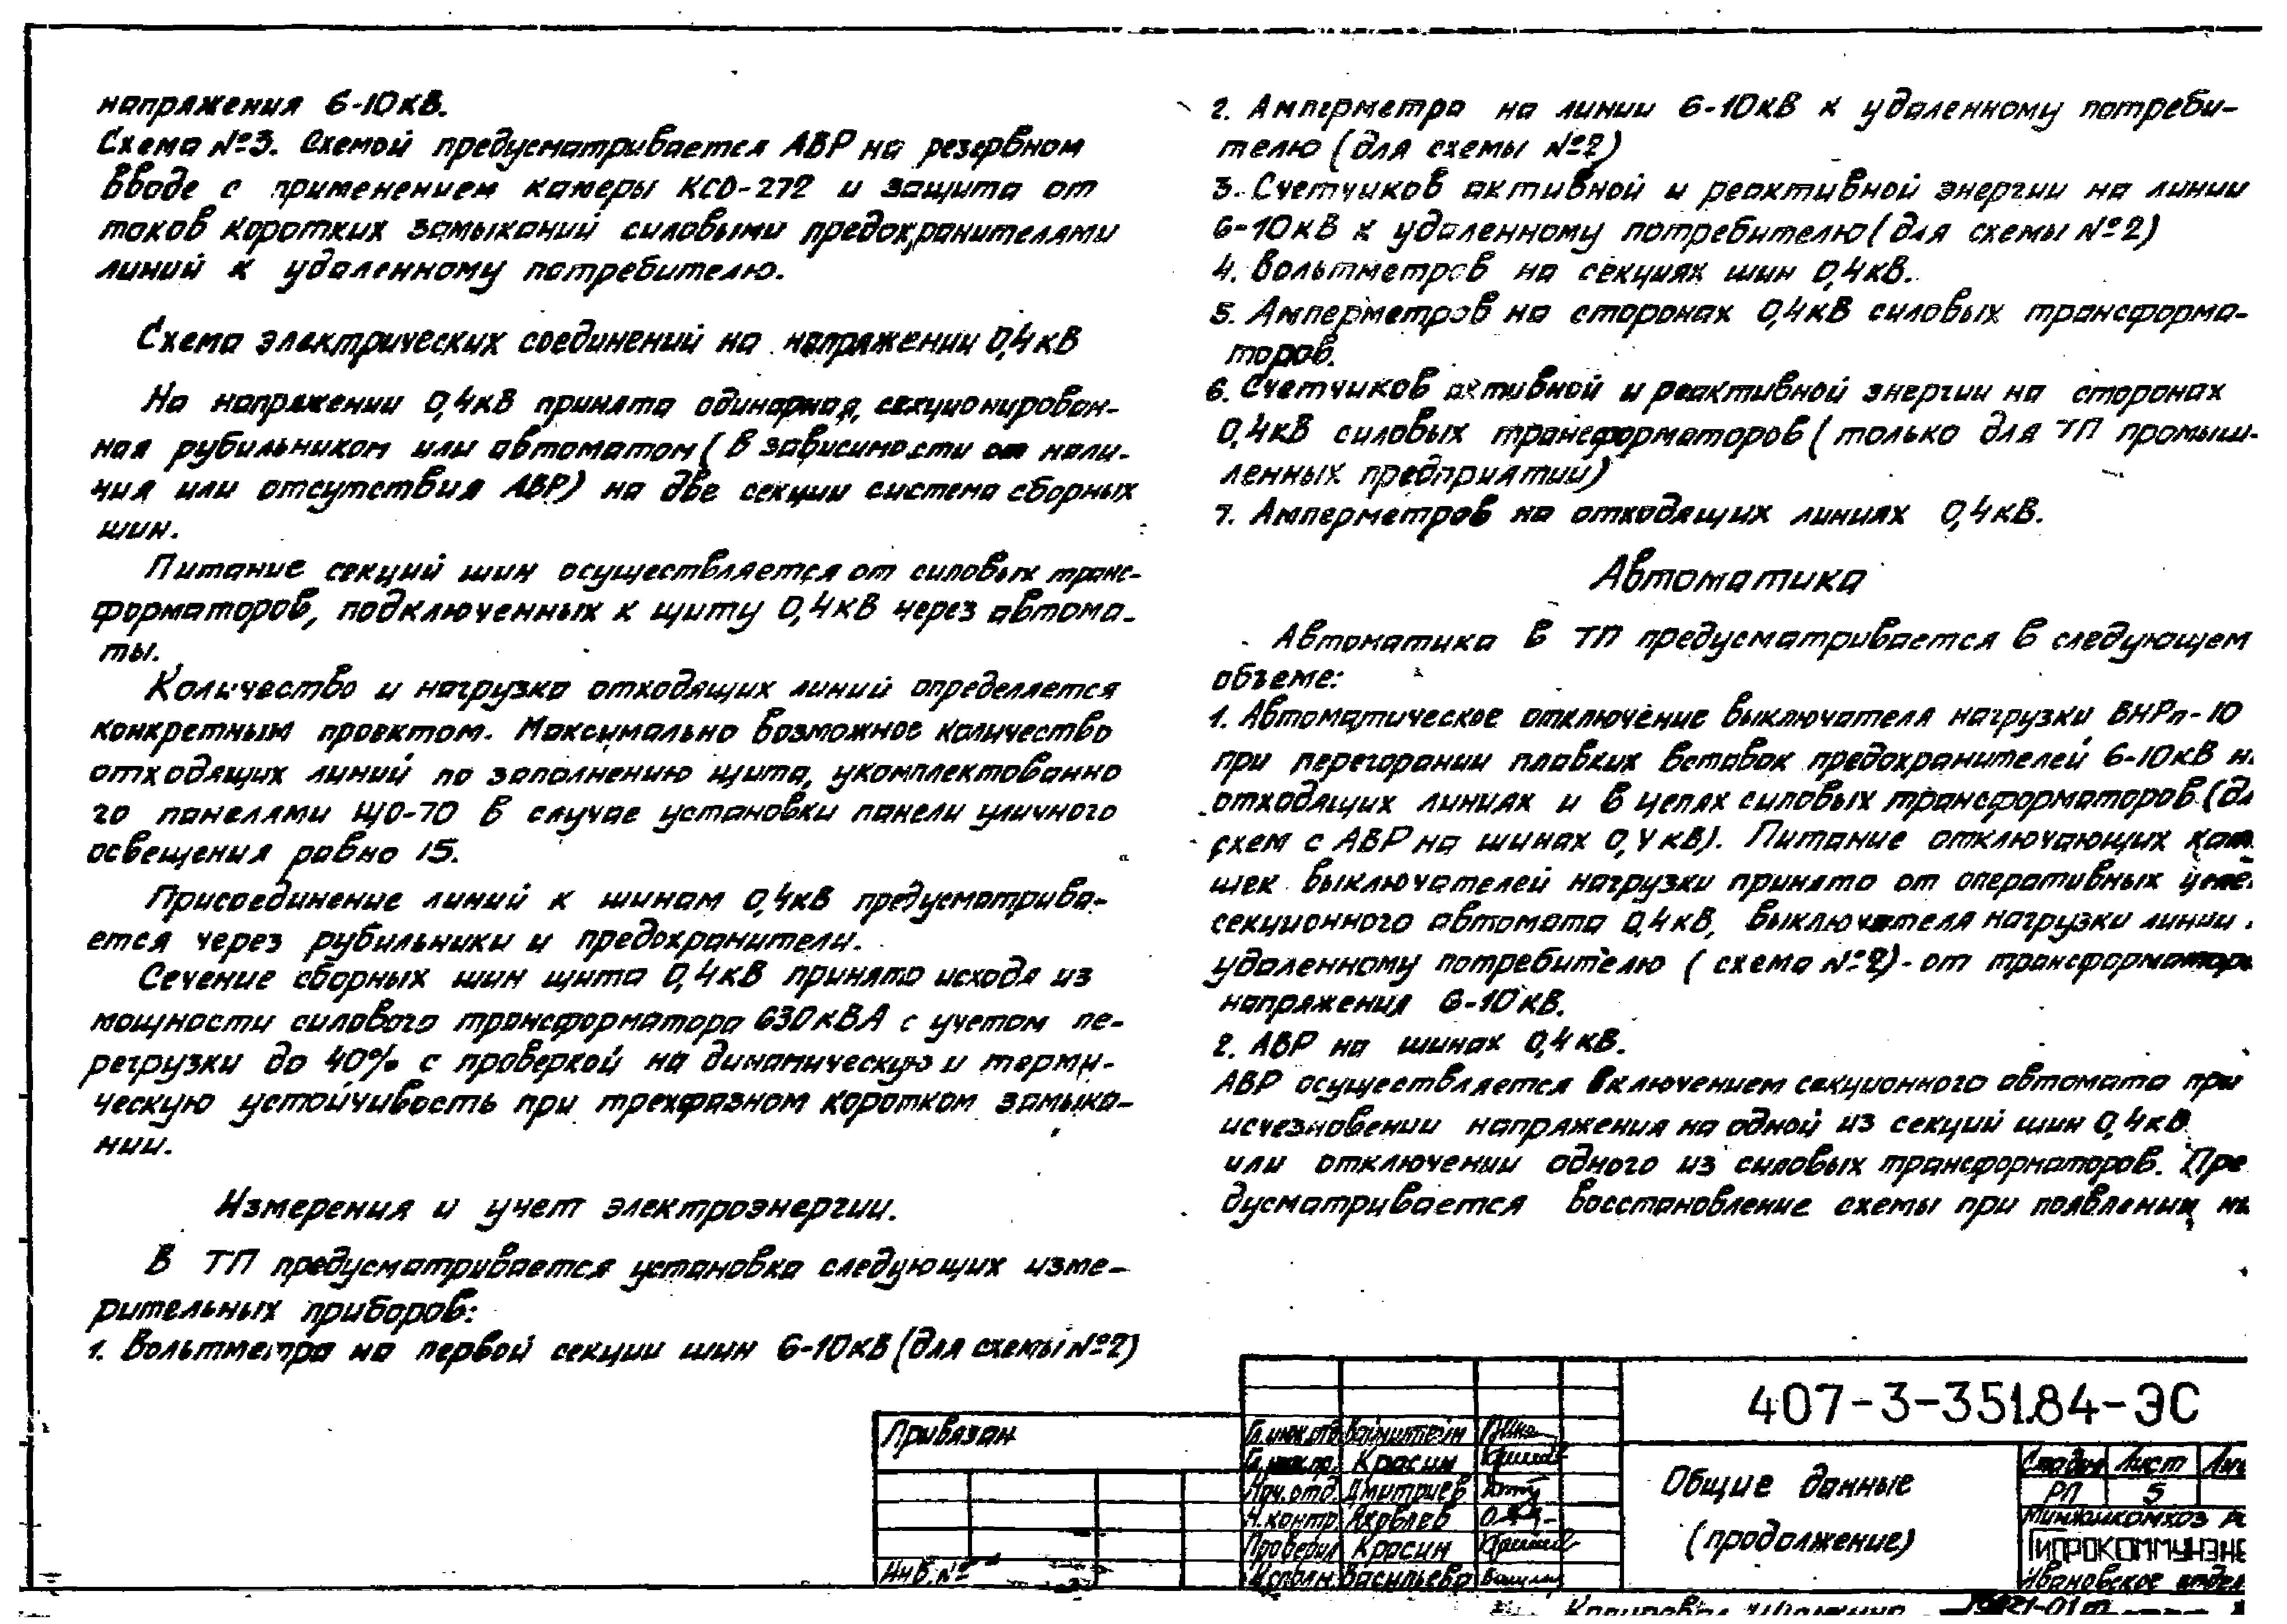 напряжения 6-10кВ.
Схема №3. Схемой предусматривается АВР на резервном
вводе с применением камеры КСО-272 и защита от
токов коротких замыканий силовыми предохранителями
линий к удаленному потребителю.
Схема электрических соединений на напряжении 0,4кВ
На напряжении 0,4кВ принята одинарная, секционирован-
ная рубильником или автоматом (в зависимости от нали-
чия или отсутствия АВР) на две секции система сборных
шин.
Питание секций шин осуществляется от силовых транс-
форматоров, подключенных к щиту 0,4кВ через автома-
ты.
Количество и нагрузка отходящих линий определяется
конкретным проектом. Максимально возможное количество
отходящих линий по заполнению щита, укомплектованно
го панелями ЩО-70 в случае установки панели уличного
освещения равно 15.
Присоединение линий к шинам 0,4кВ предусматрива-
ется через рубильники и предохранители.
Сечение сборных шин щита 0,4кВ принято исходя из
мощности силового трансформатора 630кВА с учетом пе-
регрузки до 40% с проверкой на динамическую и терми-
ческую устойчивость при трехфазном коротком замыка-
нии.
Измерения и учет электроэнергии.
В ТП предусматривается установка следующих изме-
рительных приборов:
1. Вольтметра на первой секции шин 6-10кВ (для схемы №2)
2. Амперметра на линии 6-10кВ к удаленному потреби-
телю (для схемы №2)
3. Счетчиков активной и реактивной энергии на линии
6-10кВ к удаленному потребителю (для схемы №2)
4. Вольтметров на секциях шин 0,4кВ.
5. Амперметров на сторонах 0,4кВ силовых трансформа-
торов.
6. Счетчиков активной и реактивной энергии на сторонах
0,4кВ силовых трансформаторов (только для ТП промыш-
ленных предприятий)
7. Амперметров на отходящих линиях 0,4кВ.
Автоматика
Автоматика в ТП предусматривается в следующем
объеме:
1. Автоматическое отключение выключателя нагрузки ВНРп-10
при перегорании плавких вставок предохранителей 6-10кВ н
отходящих линиях и в цепях силовых трансформаторов (дл
схем с АВР на шинах 0,4кВ). Питание отключающих кат
шек выключателей нагрузки принято от оперативных цепе
секционного автомата 0,4кВ, выключателя нагрузки линии
удаленному потребителю (схема №2)-от трансформатора
напряжения 6-10кВ.
2. АВР на шинах 0,4кВ.
АВР осуществляется включением секционного автомата при
исчезновении напряжения на одной из секций шин 0,4кВ
или отключении одного из силовых трансформаторов. Пре
дусматривается восстановление схемы при появлении на
407-3-351.84-ЭС
Привязан
Инв.№
Гл.инж.отд Вайнштейн
Гл.инж.пр. Красин
Нач.отд. Дмитриев
Н.контр. Яковлев
Проверил Красин
Исполн. Васильева
Общие данные
(продолжение)
Стадия Лист
РП 5
Минжилкомхоз
ГИПРОКОММУНЭНЕ
Ивановское отдел
Копировал